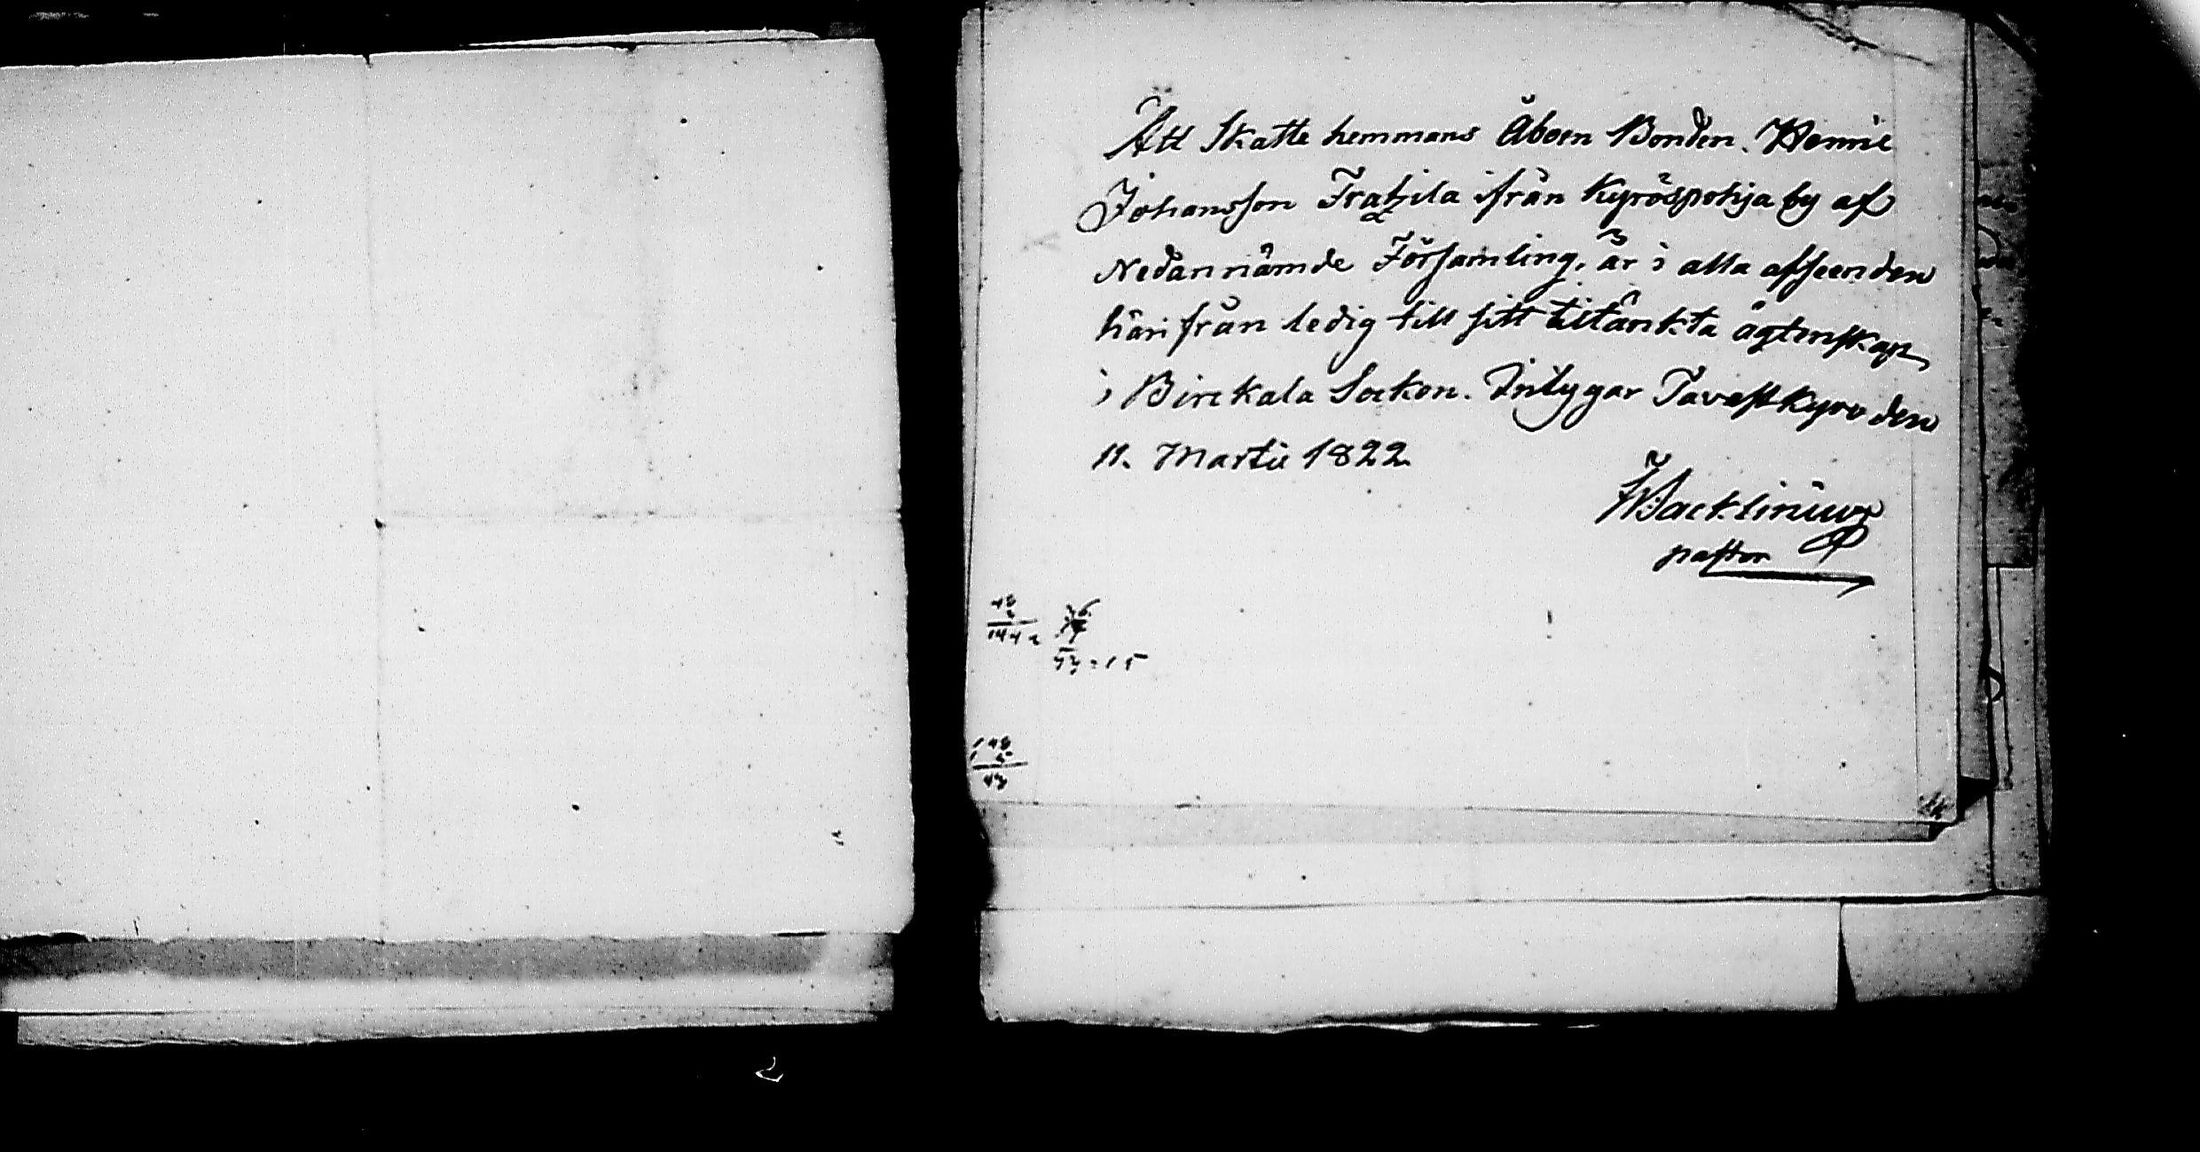 Att Skatte hemmans Åboen Bonden. Henric
Johansson Fratzila ifrån Kyröspohja by af
Nedannämde Församling, är i alla afseenden
härifrån ledig till sitt tiltänkta ägtenskap
i Birckala Sockon. Intygar Tavastkyro den
11. Martii 1822.
pastor
144
148
43